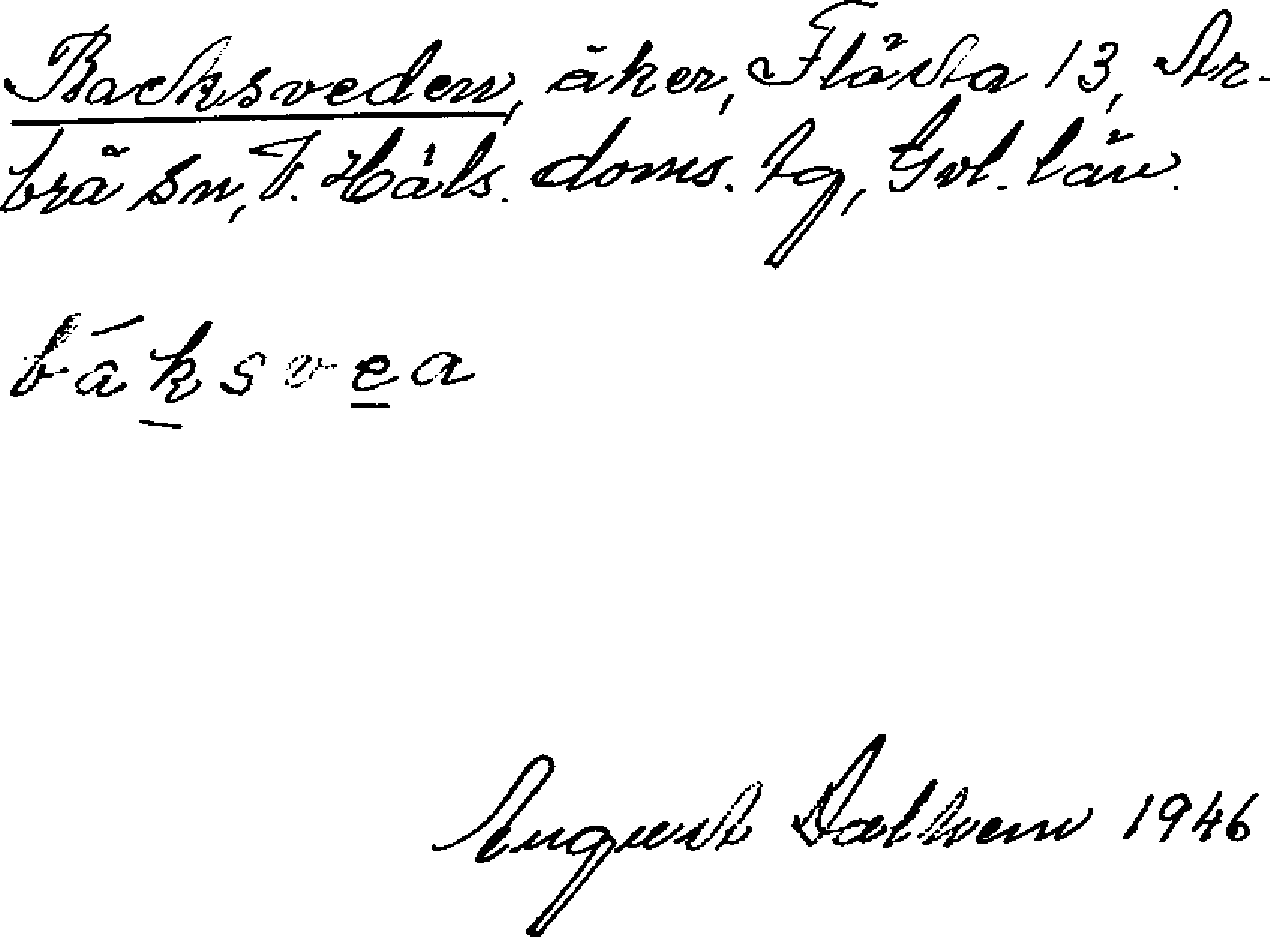 Backsveden, åker, Flästa 13, Ar-
brå sn, V. Häls. doms. tg, Gvl. län.
báksvea
August Dalhem 1946